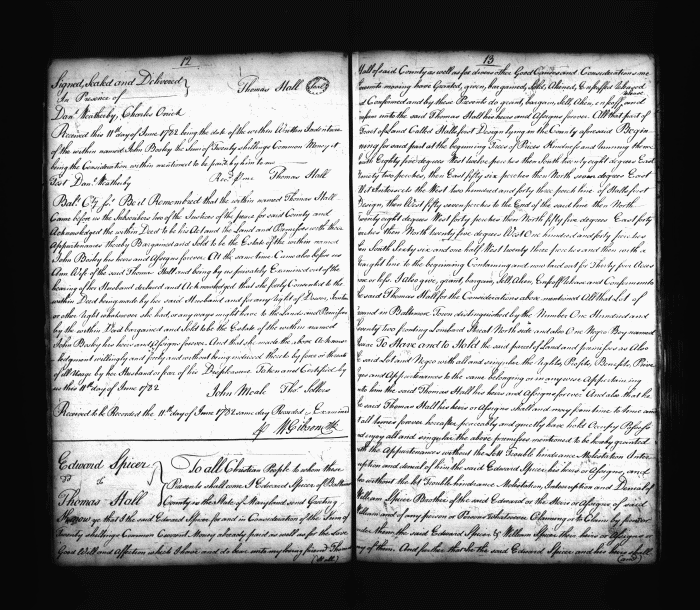 12
Signed, Sealed and Delivered
In Presence of
Thomas Hall (Seal)
Danl. Weatherby, Charles Orrick
Received this 11th day of June 1782 being the date of the within Written Indenture
of the within named John Bosley the sum of Twenty shillings Common Money it
being the Consideration within mentioned to be paid by him to me
Test Danl. Weatherby Recd. me Thomas Hall
Balt. Cty. Sc. Be it Remembred that the within named Thomas Hall
Came before us the Subscribers two of the Justices of the peace for said County and
Acknowledged the within Deed to be his Act and the Land and Premises with their
Appurtenances thereby Bargained and Sold to be the Estate of the within named
John Bosley his heirs and Assigns forever. At the same time Came also before us
Ann Wife of the said Thomas Hall and being by us privately Examined out of the
hearing of her Husband declared and Acknowledged that she freely Consented to the
within Deed being made by her said Husband and for any right of Dower,
or other right whatsoever she had or any ways might have to the Lands and Premises
by the within Deed bargained and Sold to be the Estate of the within named
John Bosley his heirs and Assigns forever. And that she made the above Acknow-
ledgment willingly and freely and without being induced there to by fear or threats
of ill Usage by her Husband or fear of his Displeasure Taken and Certified by
us this 11th day of June 1782
John Moale Thos. Sollers
Received to be Recorded the 11th day of June 1782 same day Recorded & Examined
Wm Gibson Clk
Edward Spicer
To
Thomas Hall
To all Christian People to whom these
Presents shall come I Edward Spicer of Baltimore
County in the State of Maryland send Greeting
Know ye that I the said Edward Spicer for and in Consideration of the Sum of
Twenty shillings Common Current Money already paid as well as for the Love
Good Will and Affection which I have and do bear unto my loving friend Thomas
(Hall)
13
Hall of said County as well as for divers other Good Causes and Considerations me
moving have Granted, given, bargained, Sold, Aliened, Enfeoffed Released
and Confirmed and by these Presents do grant, bargain, Sell, Alien, enfeoff, and
unto the said Thomas Hall his heirs and Assigns forever. All that part of
Tract of Land Called Halls first Design lying in the County aforesaid Begin
ning for said part at the beginning Trees of and running thence
Eighty five degrees West twelve perches then South twenty eight degrees East
two perches, then East fifty six perches then North seven degrees East
to the West two hundred and forty three perch line of Halls first
Design, then West fifty seven perches to the End of the said line then North
twenty eight degrees West forty perches then North fifty five degrees East forty
perches then North twenty five degrees West One hundred and forty perches
then South sixty six and one half West twenty three perches and then with a
straight line to the beginning Containing and now laid out for Thirty five Acres
more or less. I also give, grant, bargain, Sell, Alien, Enfeoff release and Confirm unto
said Thomas Hall for the Considerations above mentioned All that Lot of
Ground in Baltimore Town distinguished by the Number One Hundred and
twenty two fronting Lombard Street North side and also One Negro Boy named
To Have and to Hold the said parcel of Land and premises as Also
said Lot and Negro with all and singular the Rights, Profits, Benefits, Privi
and Appurtenances to the same belonging or in any wise Appertaining
unto him the said Thomas Hall his heirs and Assigns forever. And also that he
the said Thomas Hall his heirs or Assigns Shall and may from time to time and
at all times forever hereafter, peaceably and quietly have hold Occupy Possess
and enjoy all and singular the above premises mentioned to be hereby granted
with the Appurtenances without the Lett Trouble hindrance Molestation Inter
ruption and denial of him the said Edward Spicer, his heirs or Assigns, and
without the let Trouble hindrance Molestation, Interruption and Denial of
William Spicer Brother of the said Edward or the Heirs or Assigns of said
William and of any person or Persons whatsoever Claiming or to Claim by from or
under them the said Edward Spicer & William Spicer their heirs or Assigns or
any of them. And further that he the said Edward Spicer and his heirs shall
(and)